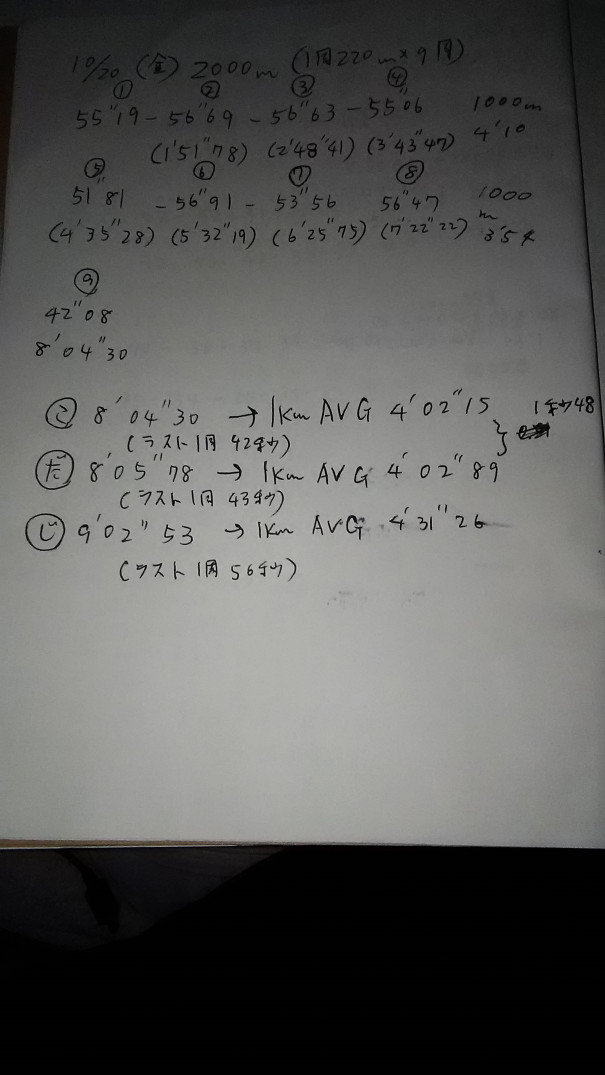 10/20 (金) 2000m (1周220m×9周)
① ② ③ ④
55"19 - 56"69 - 56"63 - 55"06 1000m
(1'51"78) (2'48"41) (3'43"47) 4'10
⑤ ⑥ ⑦ ⑧
51"81 - 56"91 - 53"56 56"47 1000m
(4'35"28) (5'32"19) (6'25"75) (7'22"22) 3'54
⑨
42"08
8'04"30
こ 8'04"30 → 1Km AVG 4'02"15 } 1秒48
(ラスト1周 42秒)
だ 8'05"78 → 1Km AVG 4'02"89
(ラスト1周 43秒)
じ 9'02"53 → 1Km AVG 4'31"26
(ラスト1周 56秒)